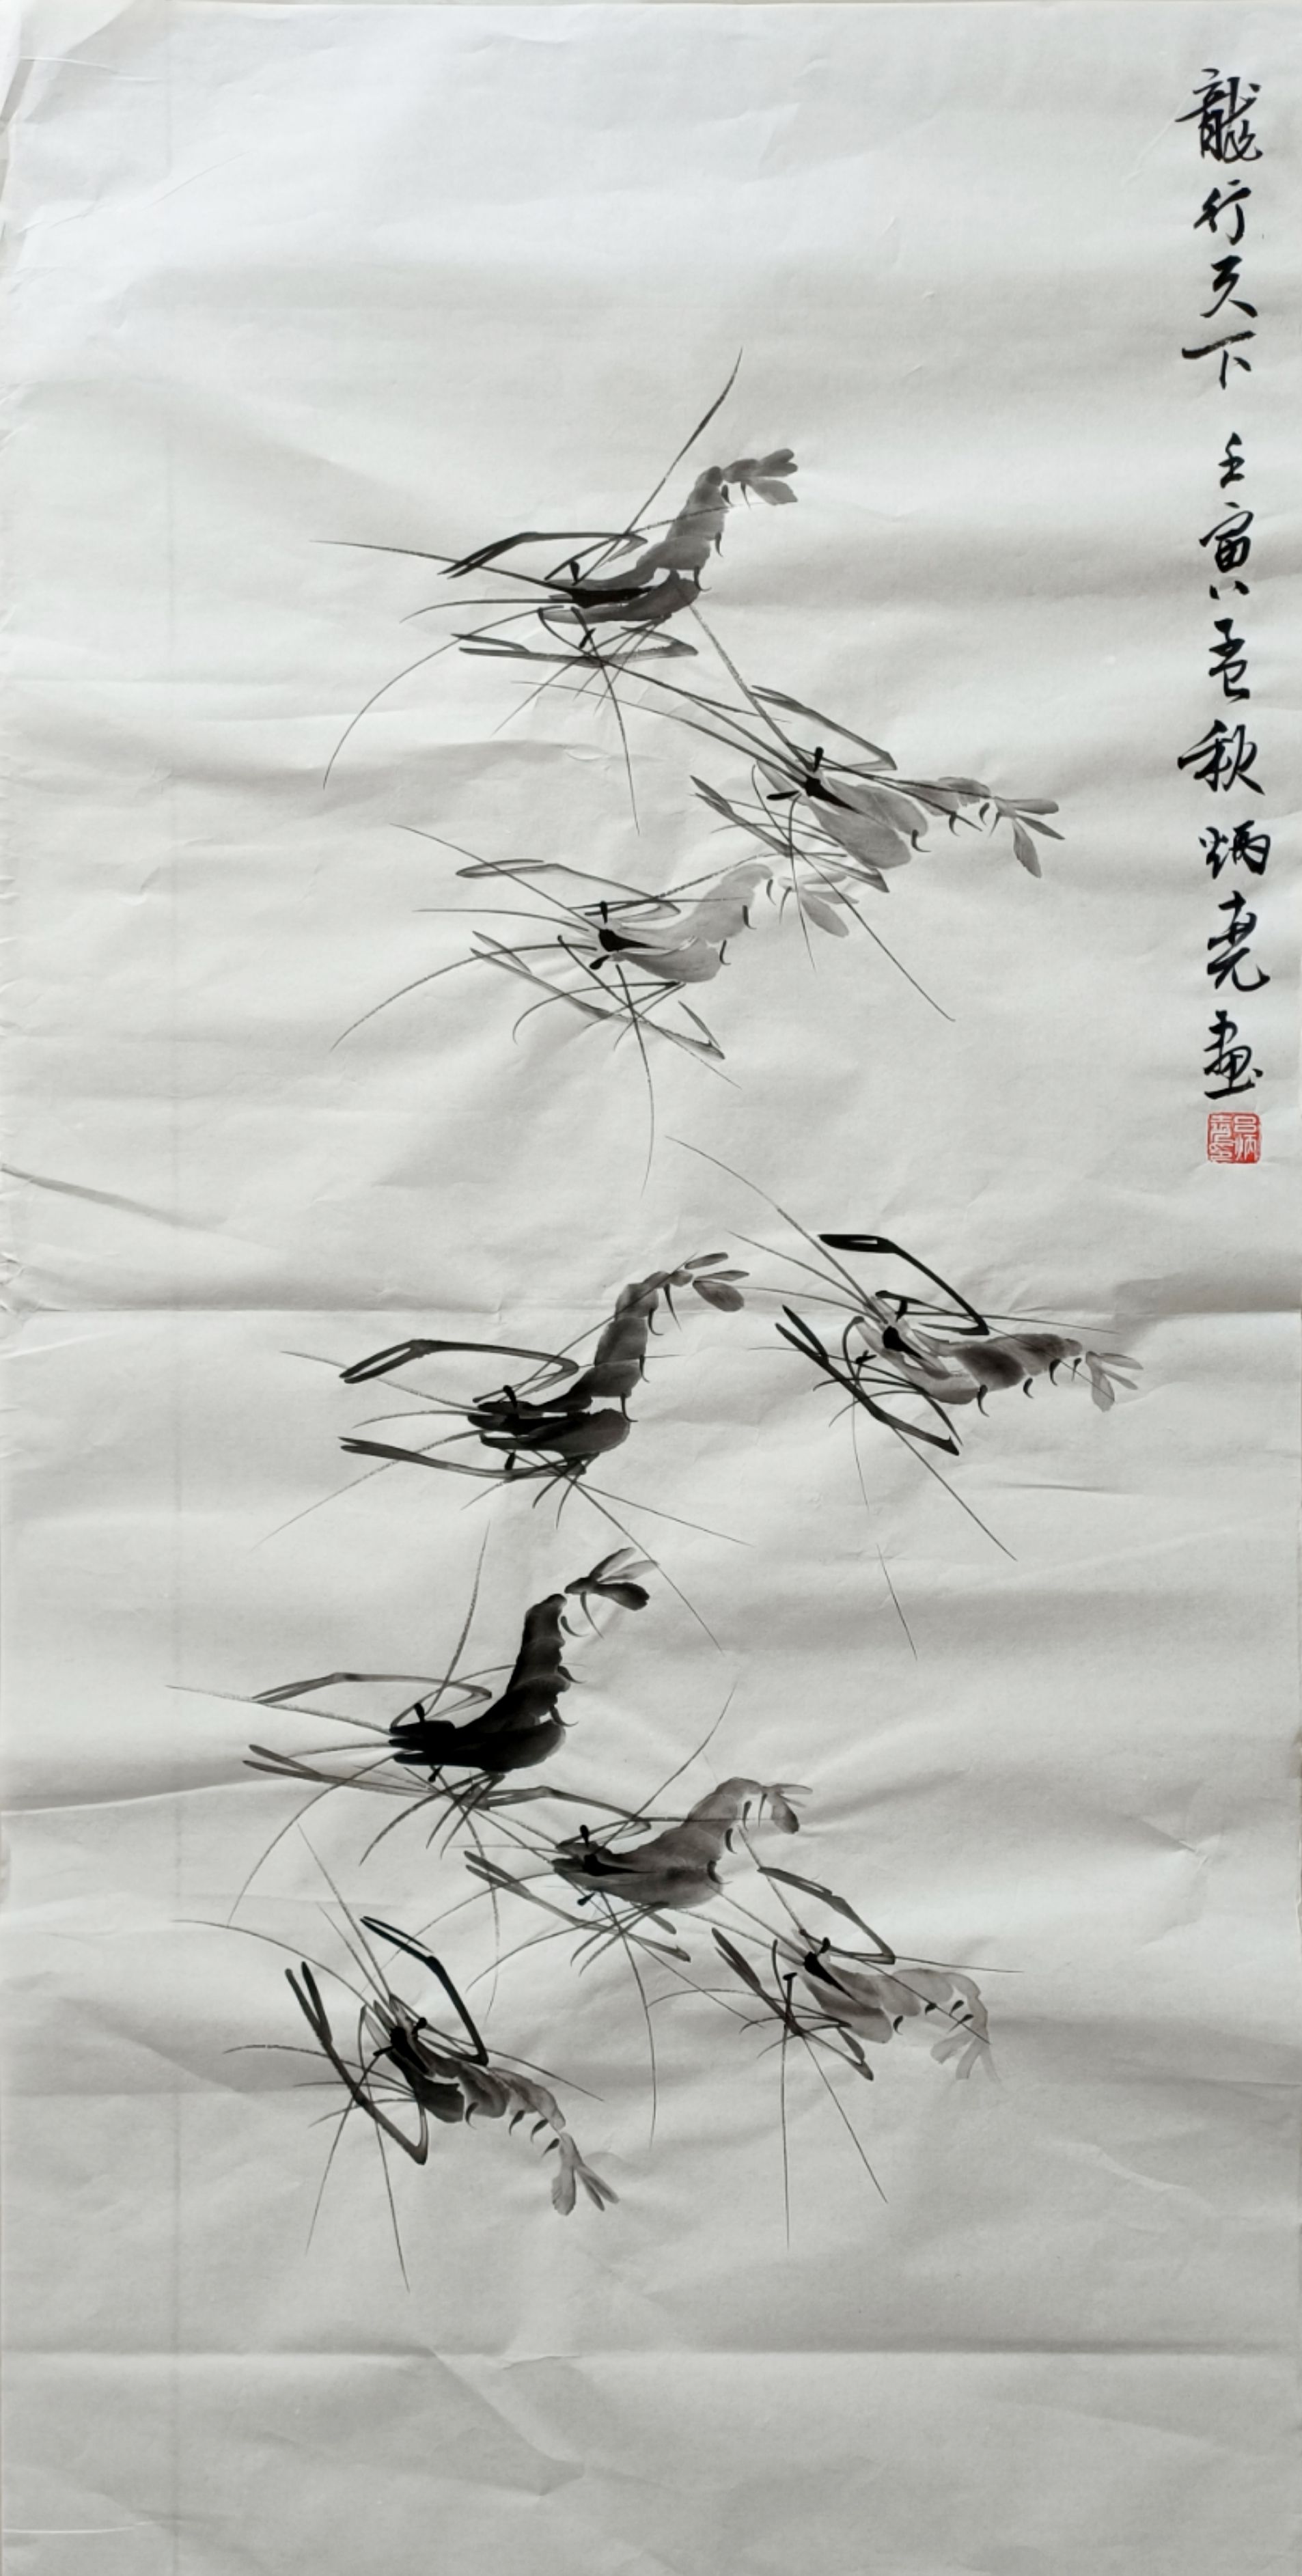 龍行天下 壬寅孟秋 炳堯畫
吕炳堯印